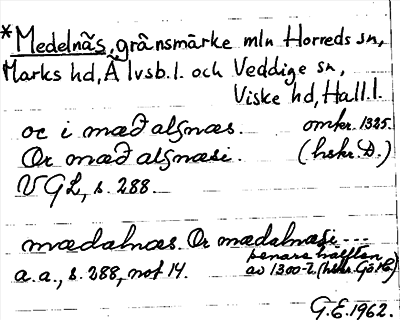 *Medelnäs, gränsmärke mln Horreds sn,
Marks hd, Älvsb.l. och Veddige sn,
Viske hd, Hall.l.
oc i mæðalsnæs. omkr. 1325.
Or mæðalsnæsi. (hskr. D.)
VGL, s. 288.
mædalnæs. Or mædalnæsi ---
senare hälften
a.a., s. 288, not 14. av 1300-t. (hskr.
G.E. 1962.